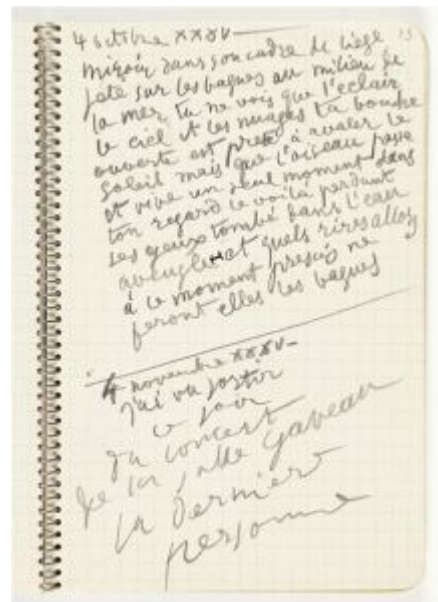 4 octobre XXXV — 15
miroir dans son cadre de liège
jeté sur les vagues au milieu de
la mer tu ne vois que l'eclair
le ciel et les nuages ta bouche
ouverte est prete à avaler le
soleil mais que l'oiseau passe
et vive un seul moment dans
ton regard le voilà perdant
ses yeux tombé dans l'eau
aveugle et quels rires
à ce moment precis ne
feront elles les vagues
4 novembre XXXV—
j'ai vu sortir
ce soir
du concert
de la salle gaveau
la derniere
personne